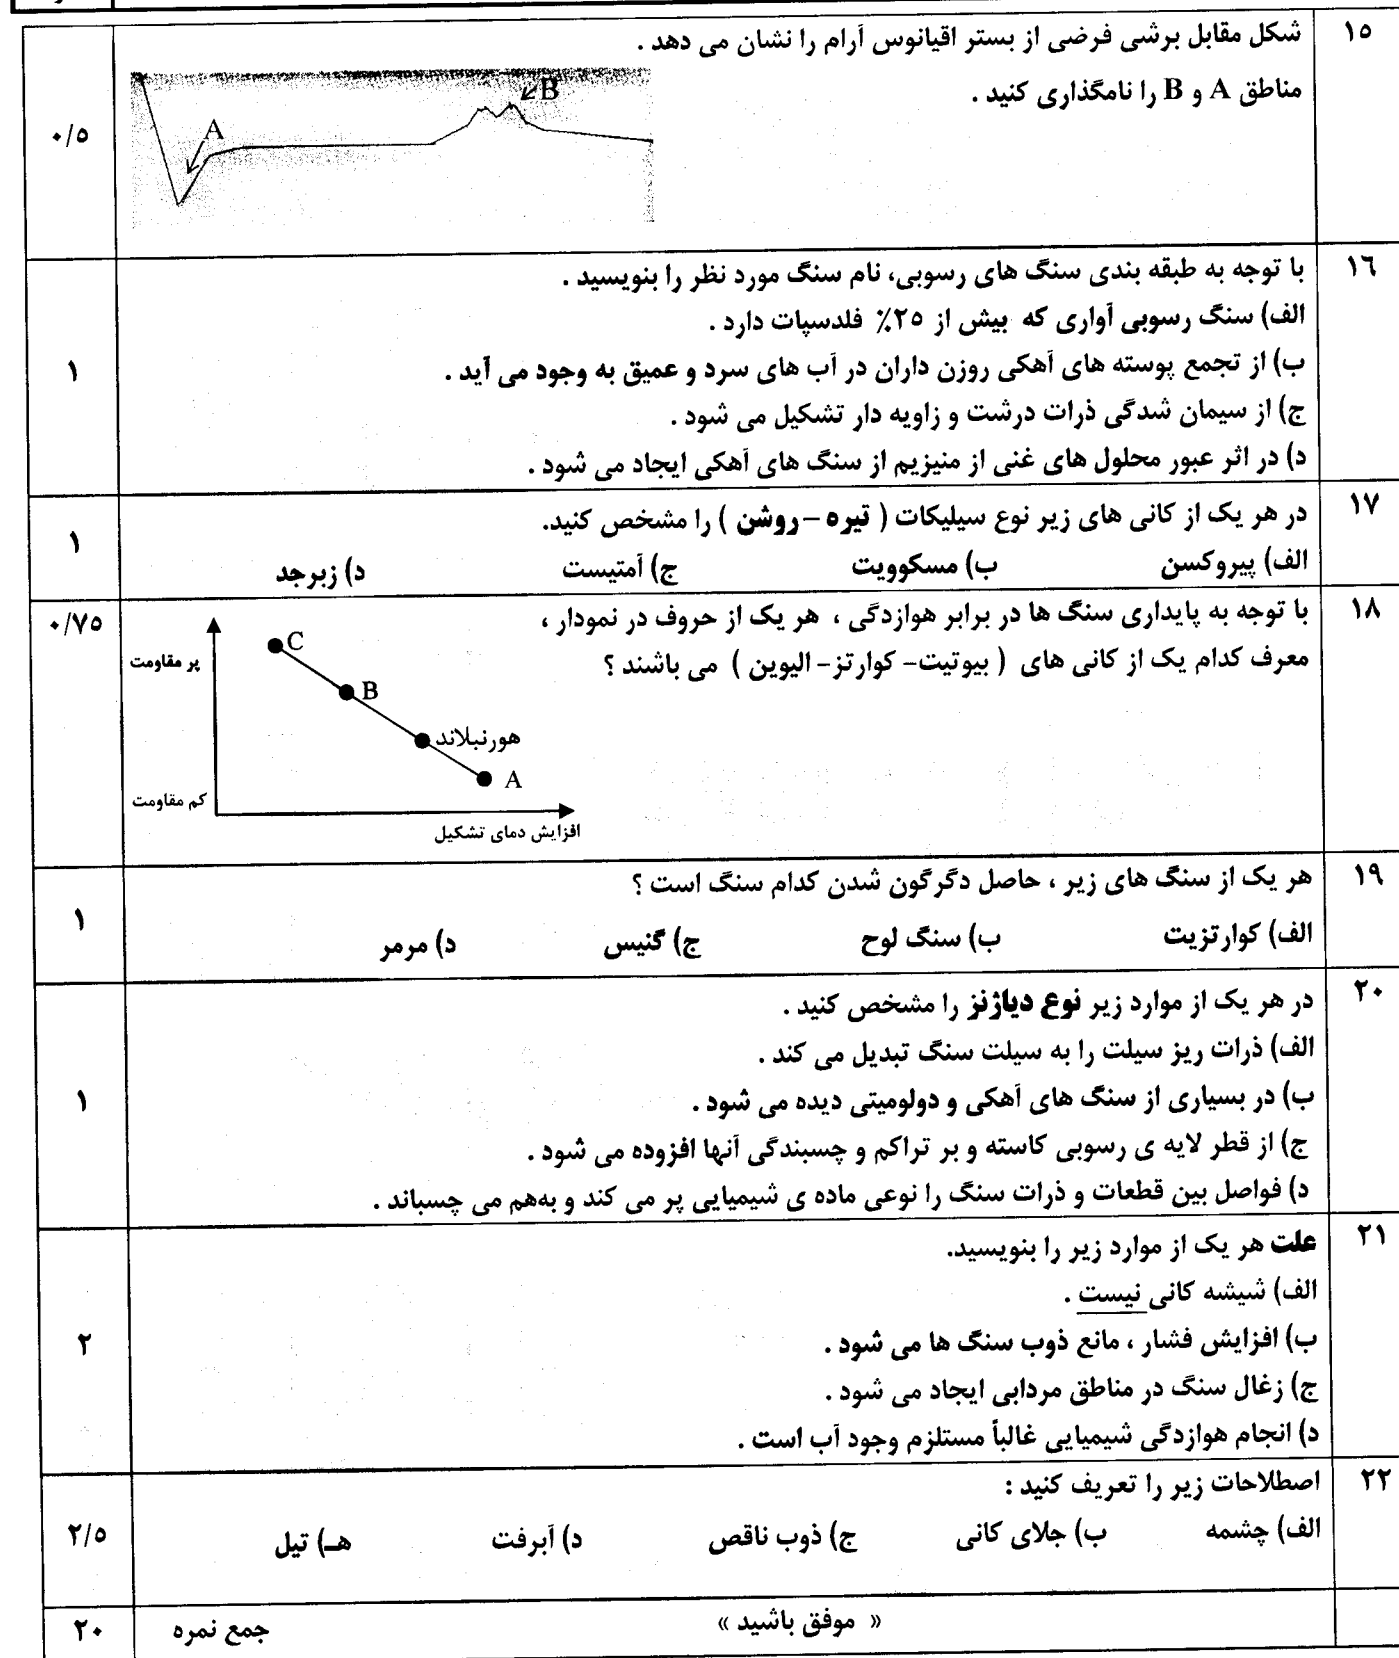 ۱۵ شکل مقابل برشی فرضی از بستر اقیانوس آرام را نشان می دهد .
مناطق A و B را نامگذاری کنید .
A
B
۰/۵
۱۶ با توجه به طبقه بندی سنگ های رسوبی، نام سنگ مورد نظر را بنویسید .
الف) سنگ رسوبی آواری که بیش از ۲۵٪ فلدسپات دارد .
ب) از تجمع پوسته های آهکی روزن داران در آب های سرد و عمیق به وجود می آید .
ج) از سیمان شدگی ذرات درشت و زاویه دار تشکیل می شود .
د) در اثر عبور محلول های غنی از منیزیم از سنگ های آهکی ایجاد می شود .
۱
۱۷ در هر یک از کانی های زیر نوع سیلیکات ( تیره – روشن ) را مشخص کنید.
الف) پیروکسن ب) مسکوویت ج) آمتیست د) زبرجد
۱
۱۸ با توجه به پایداری سنگ ها در برابر هوازدگی ، هر یک از حروف در نمودار ،
معرف کدام یک از کانی های ( بیوتیت- کوارتز- الیوین ) می باشند ؟
۰/۷۵
پر مقاومت
C
B
هورنبلاند
A
کم مقاومت
افزایش دمای تشکیل
۱۹ هر یک از سنگ های زیر ، حاصل دگرگون شدن کدام سنگ است ؟
الف) کوارتزیت ب) سنگ لوح ج) گنیس د) مرمر
۱
۲۰ در هر یک از موارد زیر نوع دیاژنز را مشخص کنید .
الف) ذرات ریز سیلت را به سیلت سنگ تبدیل می کند .
ب) در بسیاری از سنگ های آهکی و دولومیتی دیده می شود .
ج) از قطر لایه ی رسوبی کاسته و بر تراکم و چسبندگی آنها افزوده می شود .
د) فواصل بین قطعات و ذرات سنگ را نوعی ماده ی شیمیایی پر می کند و بههم می چسباند .
۱
۲۱ علت هر یک از موارد زیر را بنویسید.
الف) شیشه کانی نیست .
ب) افزایش فشار ، مانع ذوب سنگ ها می شود .
ج) زغال سنگ در مناطق مردابی ایجاد می شود .
د) انجام هوازدگی شیمیایی غالباً مستلزم وجود آب است .
۲
۲۲ اصطلاحات زیر را تعریف کنید :
الف) چشمه ب) جلای کانی ج) ذوب ناقص د) آبرفت هـ) تیل
۲/۵
« موفق باشید »
جمع نمره ۲۰